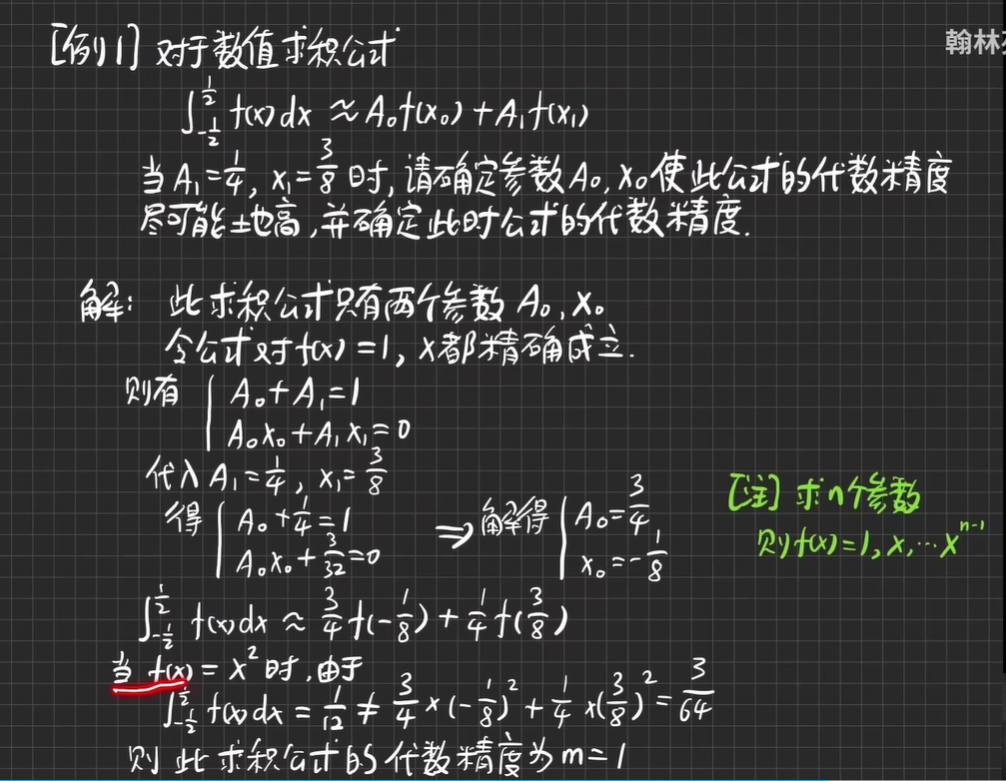 [例1] 对于数值求积公式
翰林
∫_{-1/2}^{1/2} f(x)dx ≈ A₀f(x₀)+A₁f(x₁)
当A₁=1/4, x₁=3/8时,请确定参数A₀,x₀使此公式的代数精度
尽可能地高,并确定此时公式的代数精度.
解: 此求积公式只有两个参数A₀,x₀
令公式对f(x)=1, x都精确成立.
则有 { A₀+A₁=1
A₀x₀+A₁x₁=0
代入A₁=1/4, x₁=3/8
得 { A₀+1/4=1
A₀x₀+3/32=0
⇒ 解得 { A₀=3/4
x₀=-1/8
[注] 求n个参数
则f(x)=1,x,…x^{n-1}
∫_{-1/2}^{1/2} f(x)dx ≈ 3/4 f(-1/8)+1/4 f(3/8)
当 f(x)=x²时,由于
∫_{-1/2}^{1/2} f(x)dx = 1/12 ≠ 3/4×(-1/8)²+1/4×(3/8)²=3/64
则此求积公式的代数精度为m=1